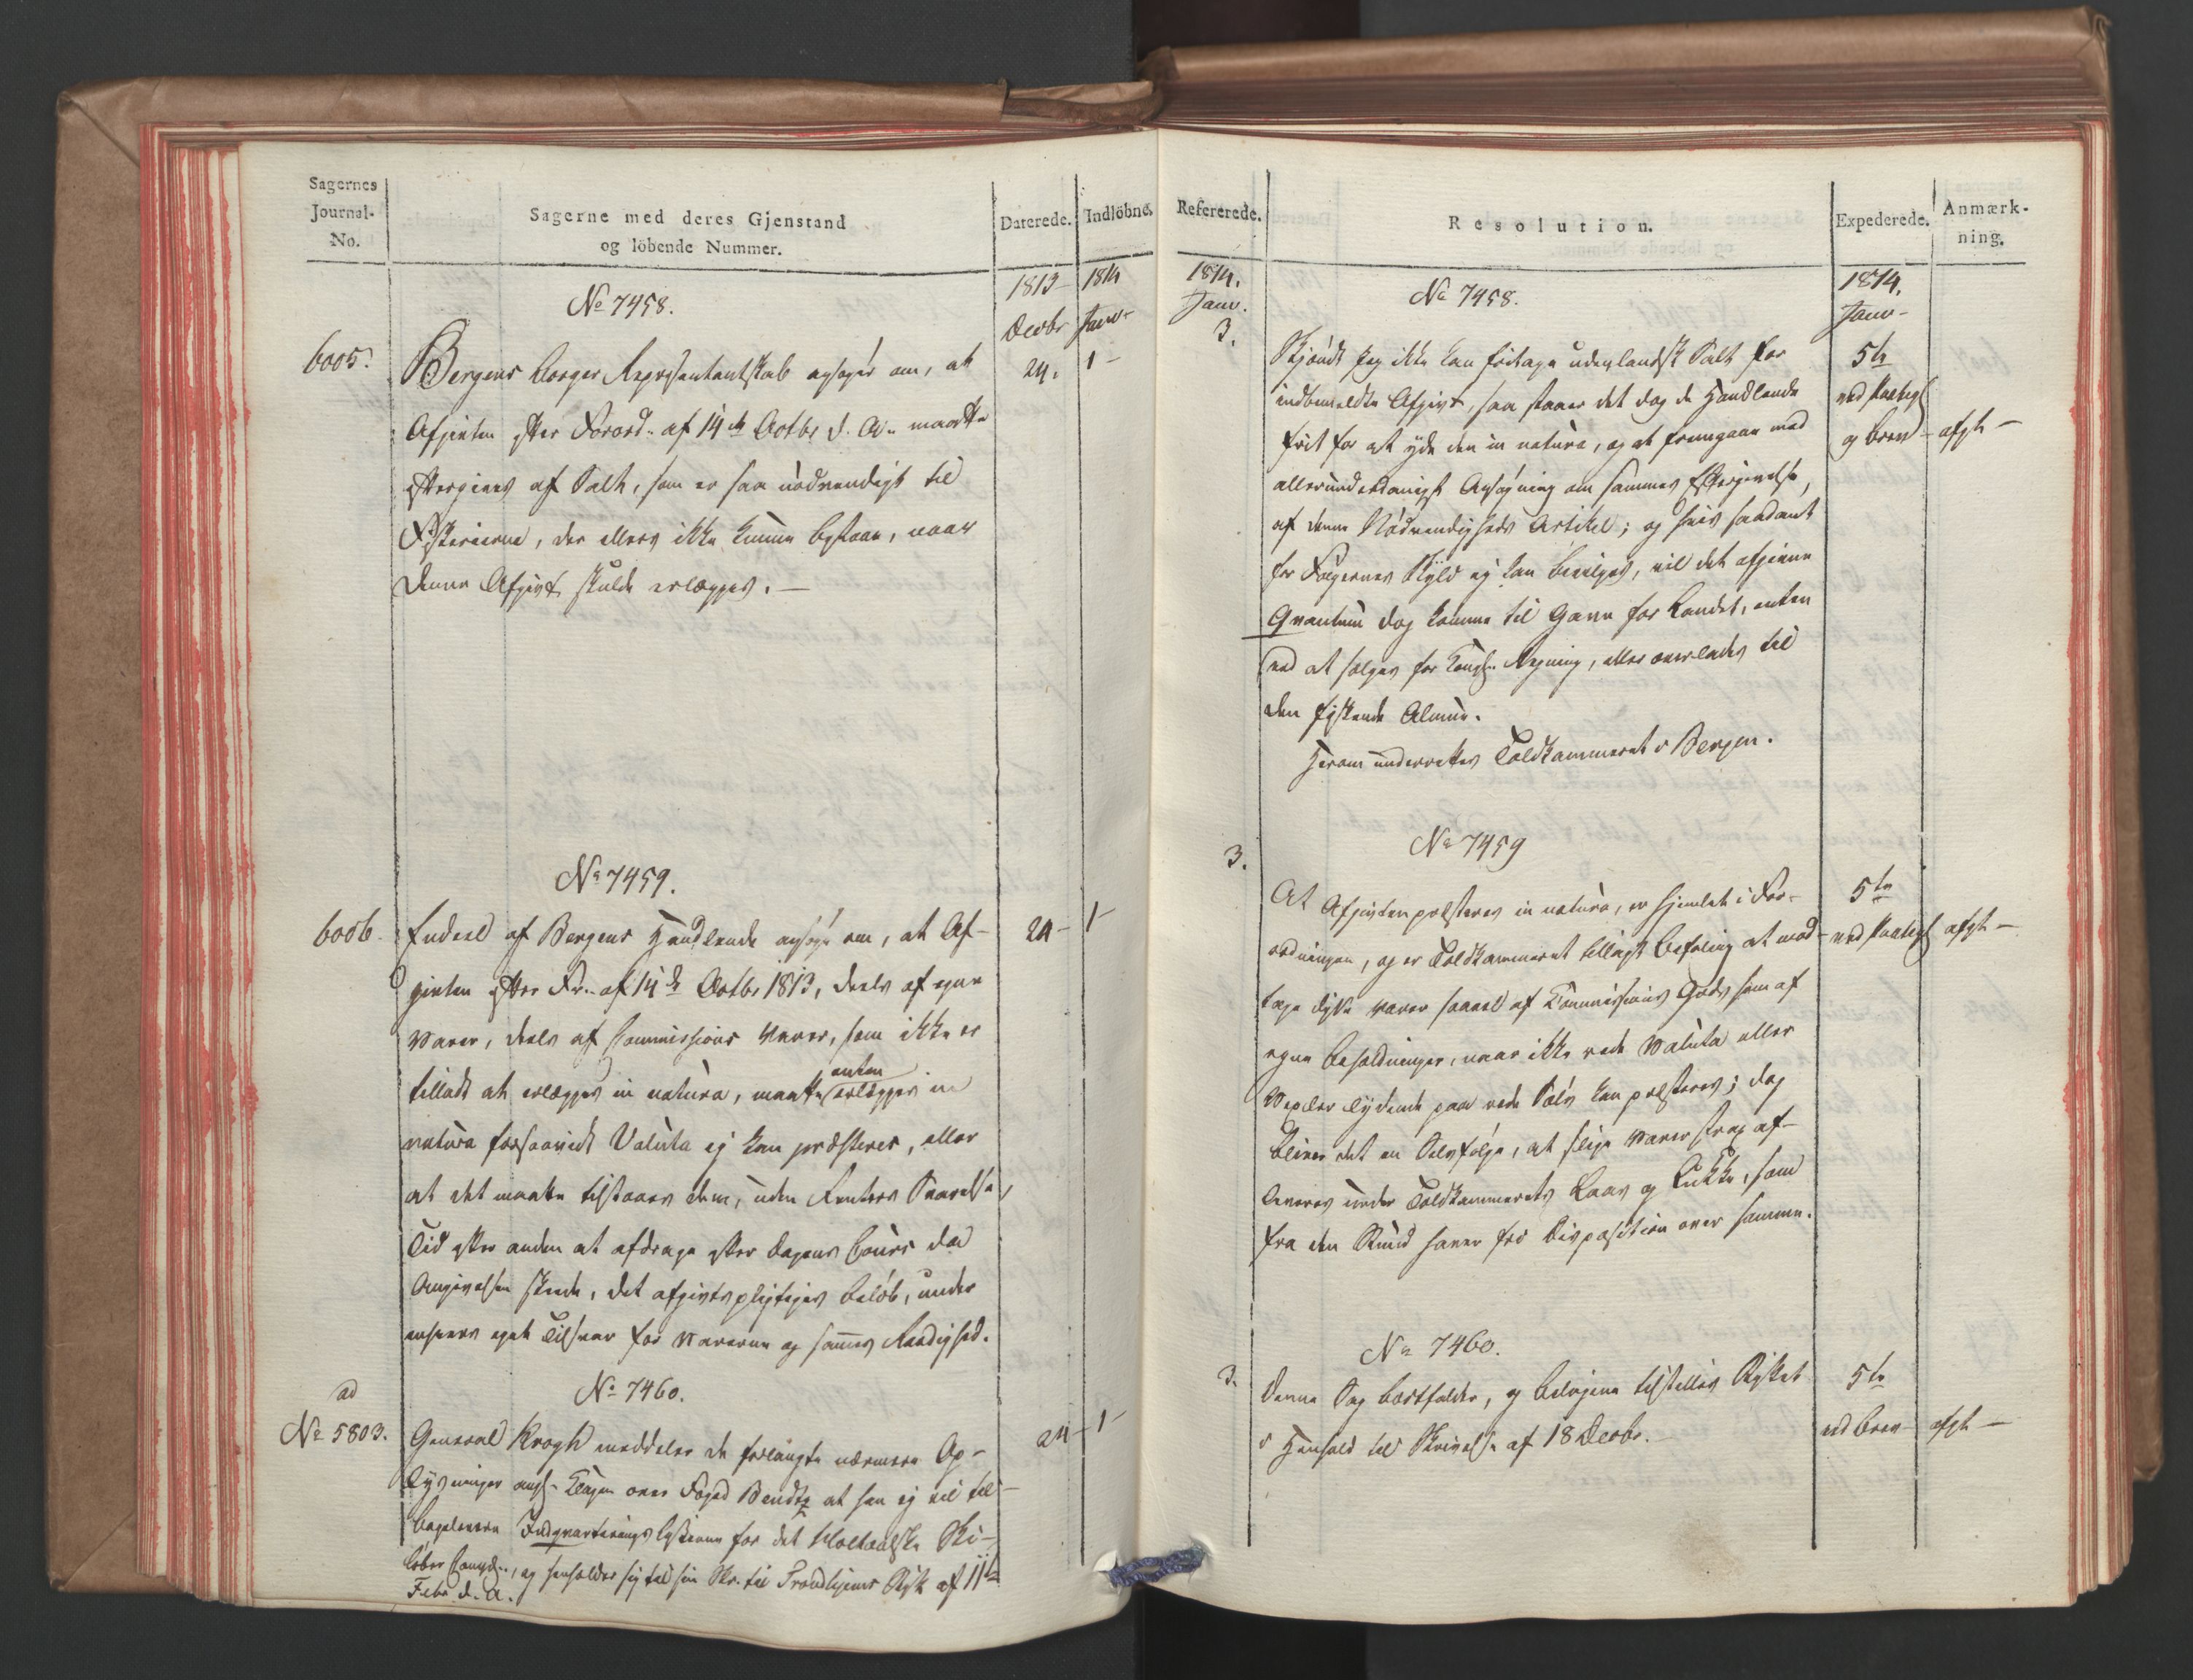 Sagernes
Journal-
No.
Sagerne med deres Gjenstand
og löbende Nummer.
Daterede.
Indlöbne.
1813
1814
Decbr
Janv.
No 7458.
6005.
Bergens Borger Repræsentantskab ansøger om, at
24.
1
Afgivten efter Forord. af 14de Octbr d. A. maatte
eftergives af Salt, som er saa nödvendigt til
Fiskerierne, der ellers ikke kunne bestaae, naar
denne Afgivt skulde erlægges.
No 7459.
6006.
Endeel af Bergens Handlende ansøge om, at Af-
24
1
givten efter Fr. af 14de Octbr 1813, deels af egne
Varer, deels af Commissions Varer, som ikke er
tilladt at erlægges in natura, maatte enten erlægges in
natura forsaavidt Valuta ej kan præsteres, eller
at det maatte tilstaaes dem, uden Renters Svarelse,
Tid efter anden at afdrage efter Dagens Cours da
Angivelsen skeede, det afgivtspligtiges Beløb, under
enhvers eget Tilsvar for Varerne og sammes Rædighed.
ad
No 5803.
No 7460.
General Krogh meddeler de forlangte nærmere Op-
24
1
lysninger angl. Klagen over Foged Bendtz at han ej vil til-
bagelevere Indqvarteringslisterne for det Holtaalske Ski-
løber Compg., og henholder sig til sin Skr. til Trondhjems Stift af 11te
Febr d. A.
Refererede.
Resolution.
Expederede.
Anmærk-
ning.
1814.
Janv.
1814.
Janv.
3.
No 7458.
Skjøndt jeg ikke kan fritage udenlandsk Salt for
5te
indbemeldte Afgivt, saa staaer det dog de Handlende
ved Paategl
frit for at yde den in natura, og at fremgaae med
og Brev
afgt
allerunderdanigst Ansøgning om sammes Eftergivelse,
af denne Nödvendigheds Artikel; og hvis saadant
for Følgernes Skyld ej kan bevilges, vil det afgivne
Qvantum dog komme til Gavn for Landet, enten
ved at sælges for Kongl. Regning, eller overlades til
den fiskende Almue.
Herom underrettes Toldkammeret i Bergen.
3.
No 7459
At Afgivten præsteres in natura, er hjemlet i For-
5te
ordningen, og er Toldkammeret tillagt Befaling at mod-
ved Paategl
afgt
tage dyre Varer saavel af Commissions Gods som af
egne Beholdninger, naar ikke rede Valuta eller
Vexler lydende paa rede Sølv kan præsteres; dog
bliver det en Selvfølge, at slige Varer strax af-
leveres under Toldkammerets Laas og Lukke, som
fra den Stund haver fri Disposition over samme.
3.
No 7460.
Denne Sag bortfalder, og Bilagene tilstilles Stiftet
5te
i Henhold til Skrivelse af 18 Decbr.
ved Brev
afgt